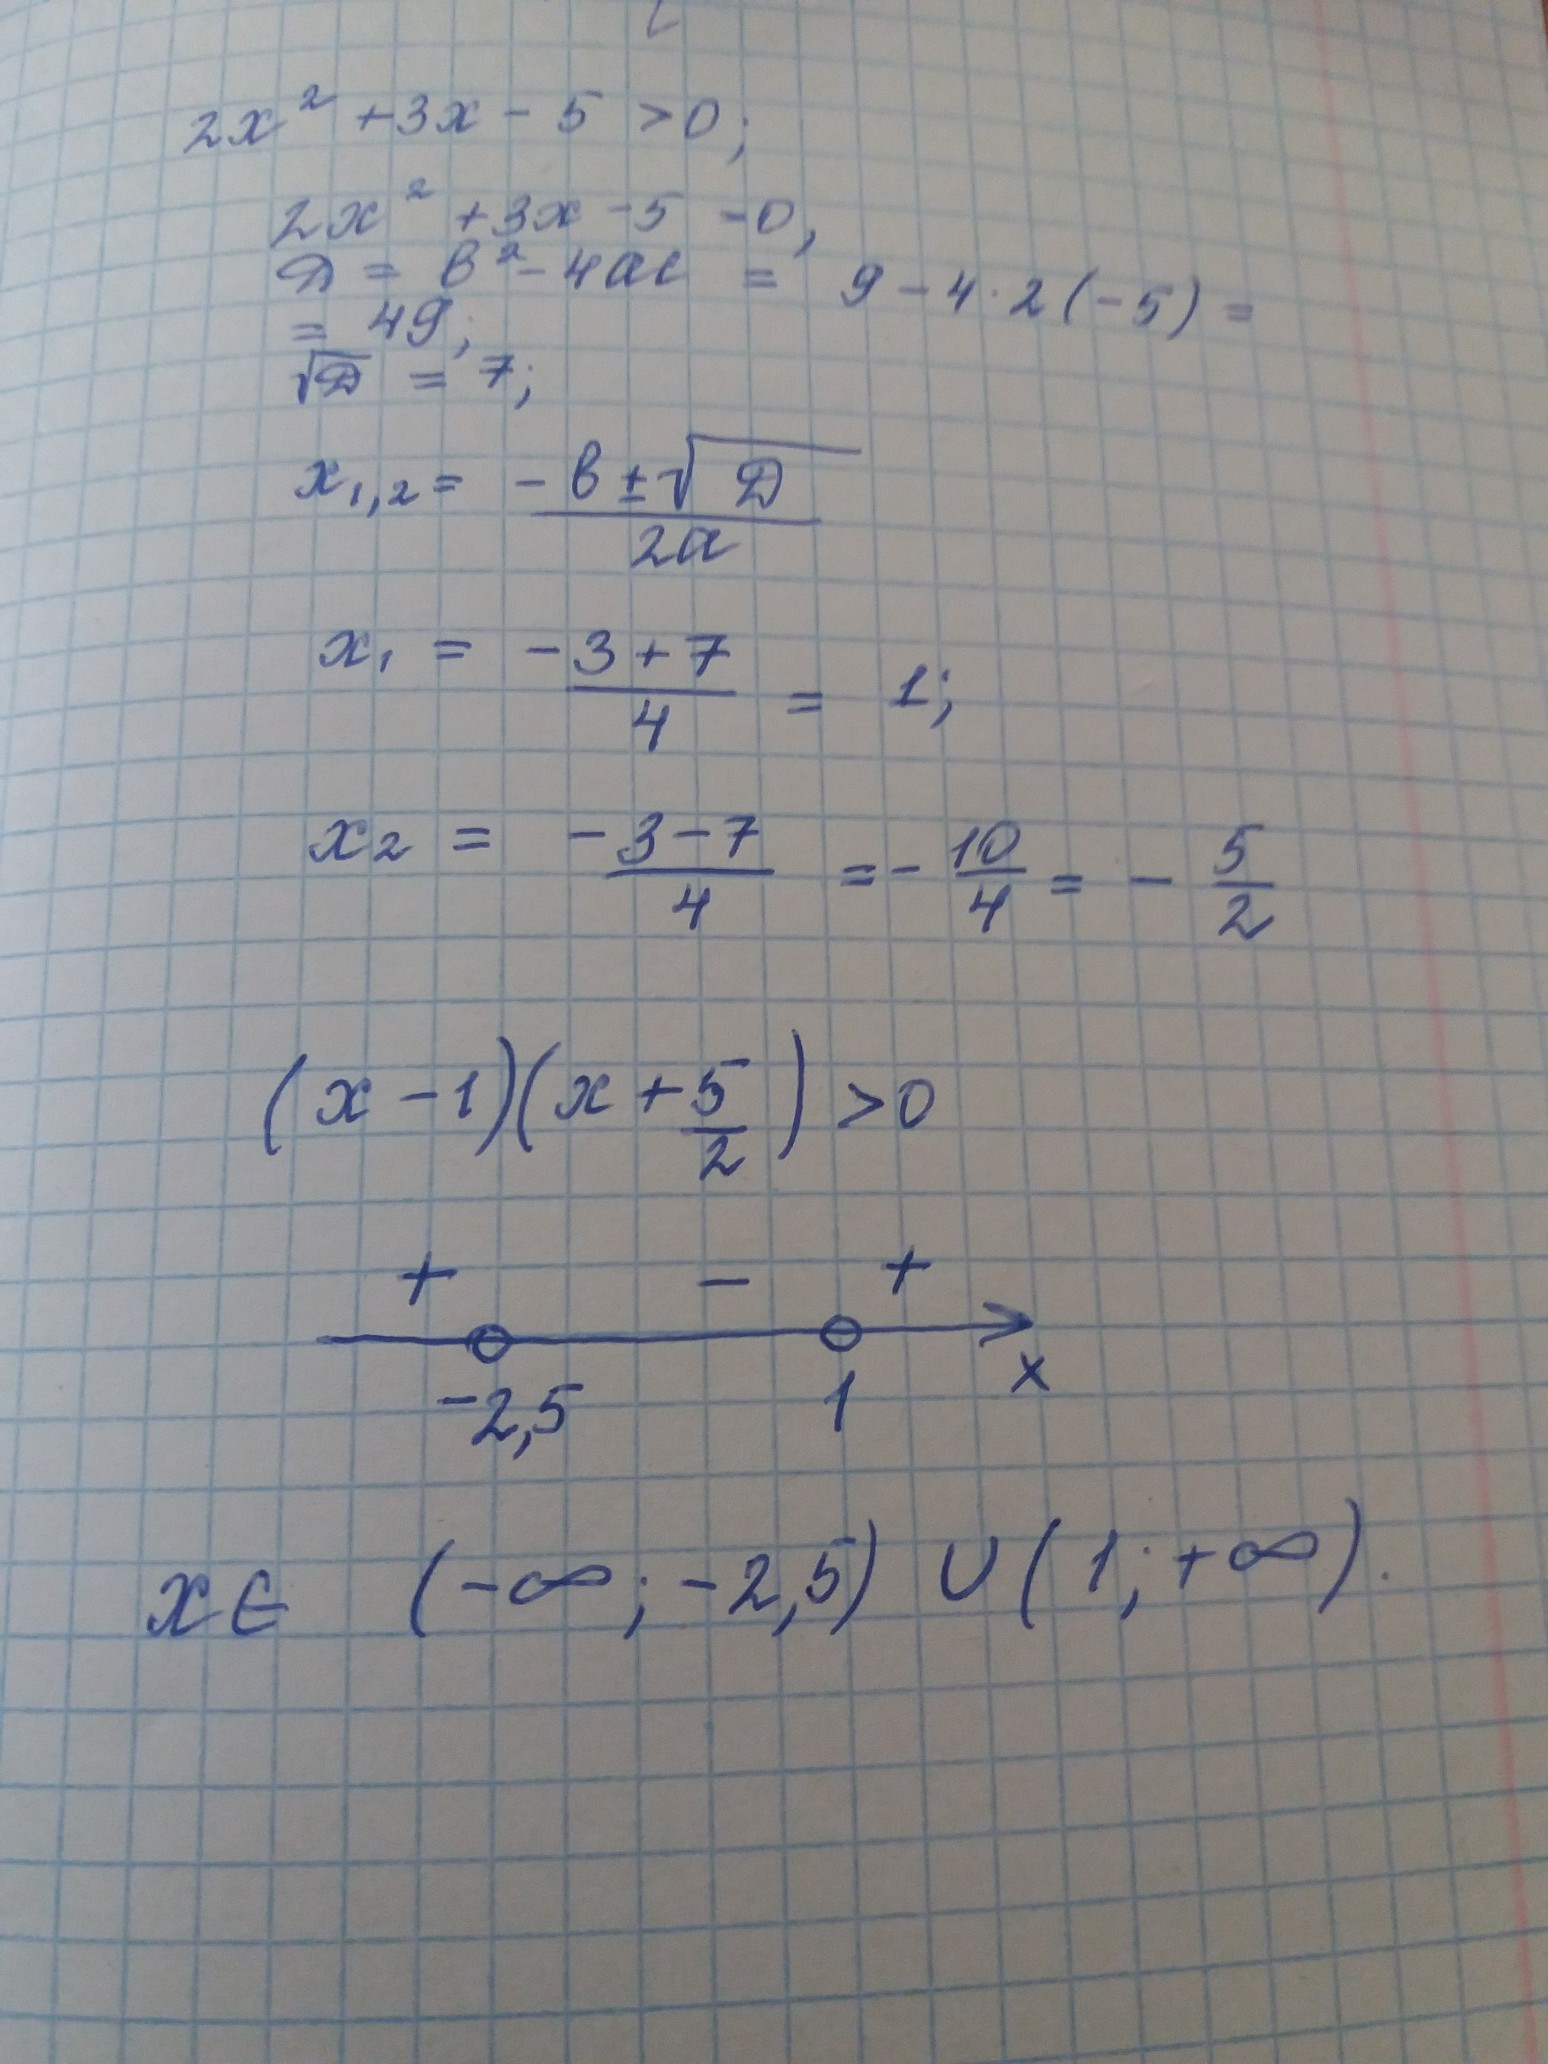 2x² + 3x - 5 > 0;
2x² + 3x - 5 - 0,
D = b² - 4ac = 9 - 4·2(-5) =
= 49;
√D = 7;
x₁,₂ = (-b ± √D)/2a
x₁ = (-3+7)/4 = 1;
x₂ = (-3-7)/4 = -10/4 = -5/2
(x - 1)(x + 5/2) > 0
+ - +
-2,5 1 x
x ∈ (-∞; -2,5) ∪ (1; +∞).